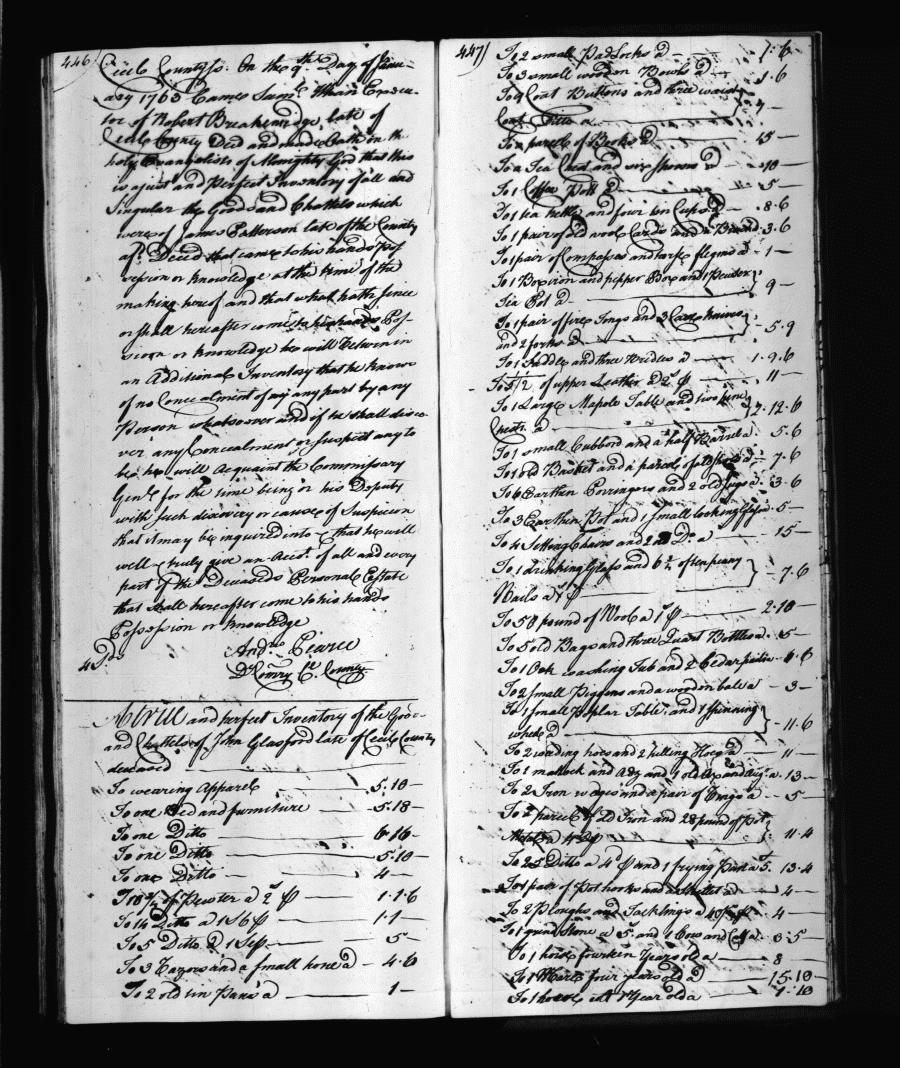 446
Cecil County ss. On the 9th Day of Janu-
ary 1763 Came Saml. Thain Execu-
tor of Robert Breakenridge late of
Cecil County Decd and made oath on the
holy Evangelists of Almighty God that this
is a just and Perfect Inventory of all and
Singular the Goods and Chattels which
were of James Patterson late of the County
afd. Deced that came to his hands Pos
session or knowledge at the time of the
making hereof and that what hath since
or shall hereafter come to his hands Pos-
session or knowledge he will Return in
an Additional Inventory that he knows
of no Concealment of any part by any
Person whatsoever and if he shall disco-
ver any Concealment or suspect any to
be he will Acquaint the Commissary
Genl. for the time being or his Deputy
with such discovery or cause of Suspicion
that it may be inquired into & that he will
well & truly give an Acct. of all and every
part of the Deceaseds Personal Estate
that shall hereafter come to his hands
Possession or knowledge
Andw. Pearce
D Comry Cl. County
and perfect Inventory of the Goods
and Chattels of John Glasford late of Cecil County
deceased
To wearing Apparel 5.10 —
To one Bed and furniture 5.18 —
To one Ditto 6 10 —
To one Ditto 5.10 —
To one Ditto 4 —
To 18½ of Pewter a 2 1.1.6
To 14 Ditto a 1s6 1.1 —
To 5 Ditto a 1s 5 —
To 3 Razors and a small hone a 4.6
To 2 old tin Pans a 1 —
447
To 2 small Padlocks a 1.6
To 3 small wooden Bowls a 1.6
To 4 Coat Buttons and three waist
Coat Ditto a 4 —
To a parcel of Books a 15 —
To a Tea Chest and six spoons a 10 —
To 1 Coffee Pott a 5 —
To 1 tea kettle and four ten Cups a 8.6
To 1 pair of old wool Cards and a Brand 3.6
To 1 pair of Compasses and two flegms a 1 —
To 1 Box iron and pepper Box and 1 Pewter
Tea Pot a 9 —
To 1 pair of fire Tongs and 3 Case knives
and 2 forks a 5.9
To 1 Saddle and three Bridles a 1.9.6
To 5½ of upper Leather a 2 11 —
To 1 Large Mapole Table and two pine
Chests a 2.12.6
To 1 small Cubbord and a half Barrel a 5.6
To 1 old Basket and a parcel of old 7.6
To 6 Earthen Porringers and 2 old Jugs a 3.6
To 3 Earthen Pot and 1 small looking Glass 5 —
To 4 Setting Chairs and 2 Do a 15 —
To 1 drinking Glass and 6¼ of tenpeany
Nails a 7.6
To 58 pound of Wool a 1 2.18
To 5 old Bags and three Quart Bottles a 5 —
To 1 Oak washing Tub and 2 Cedar pails 6.6
To 2 small Piggens and a wooden bale a 3 —
To 1 small Poplar Table and 1 spinning
wheel a 11.6
To 2 weading hoes and 2 hilling Hoes a 11 —
To 1 mattock and Adz and 1 old Ax and Aug. a 13 —
To 2 Iron wedges and a pair of Rings a 5 —
To a parcel of old Iron and 28 pound of Pot
Mettal a 4 11.4
To 25 Ditto a 4 and 1 frying Pan a 5. 13.4
To 1 pair of Pot hooks and a Skillet a 4 —
To 2 Ploughs and Tacklings a 40 4 —
To 1 grind Stone a 5. and 1 Cow and Calf a 3.5 —
To 1 horse fourteen Years old a 8
To 1 Mare four years old a 15.10 —
To 1 horse Colt 1 Year old a 1.10